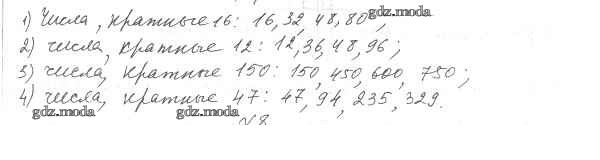 1) Числа, кратные 16: 16, 32, 48, 80;
gdz.moda
2) числа, кратные 12: 12, 36, 48, 96;
3) числа, кратные 150: 150, 450, 600, 750;
4) числа, кратные 47: 47, 94, 235, 329.
gdz.moda gdz.moda
№8